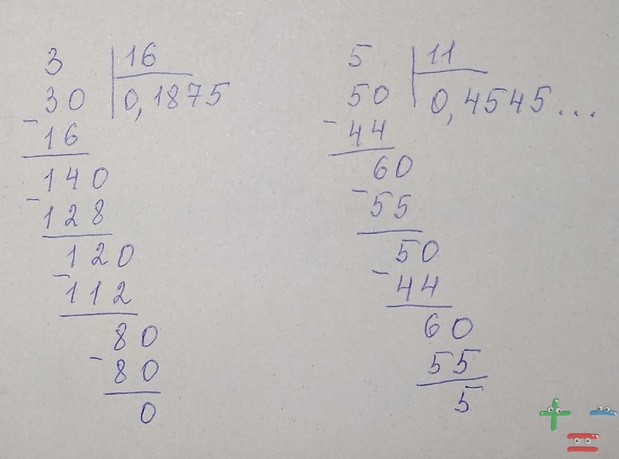 3 16
30 0,1875
- 16
140
- 128
120
- 112
80
- 80
0
5 11
50 0,4545...
- 44
60
- 55
50
- 44
60
55
5